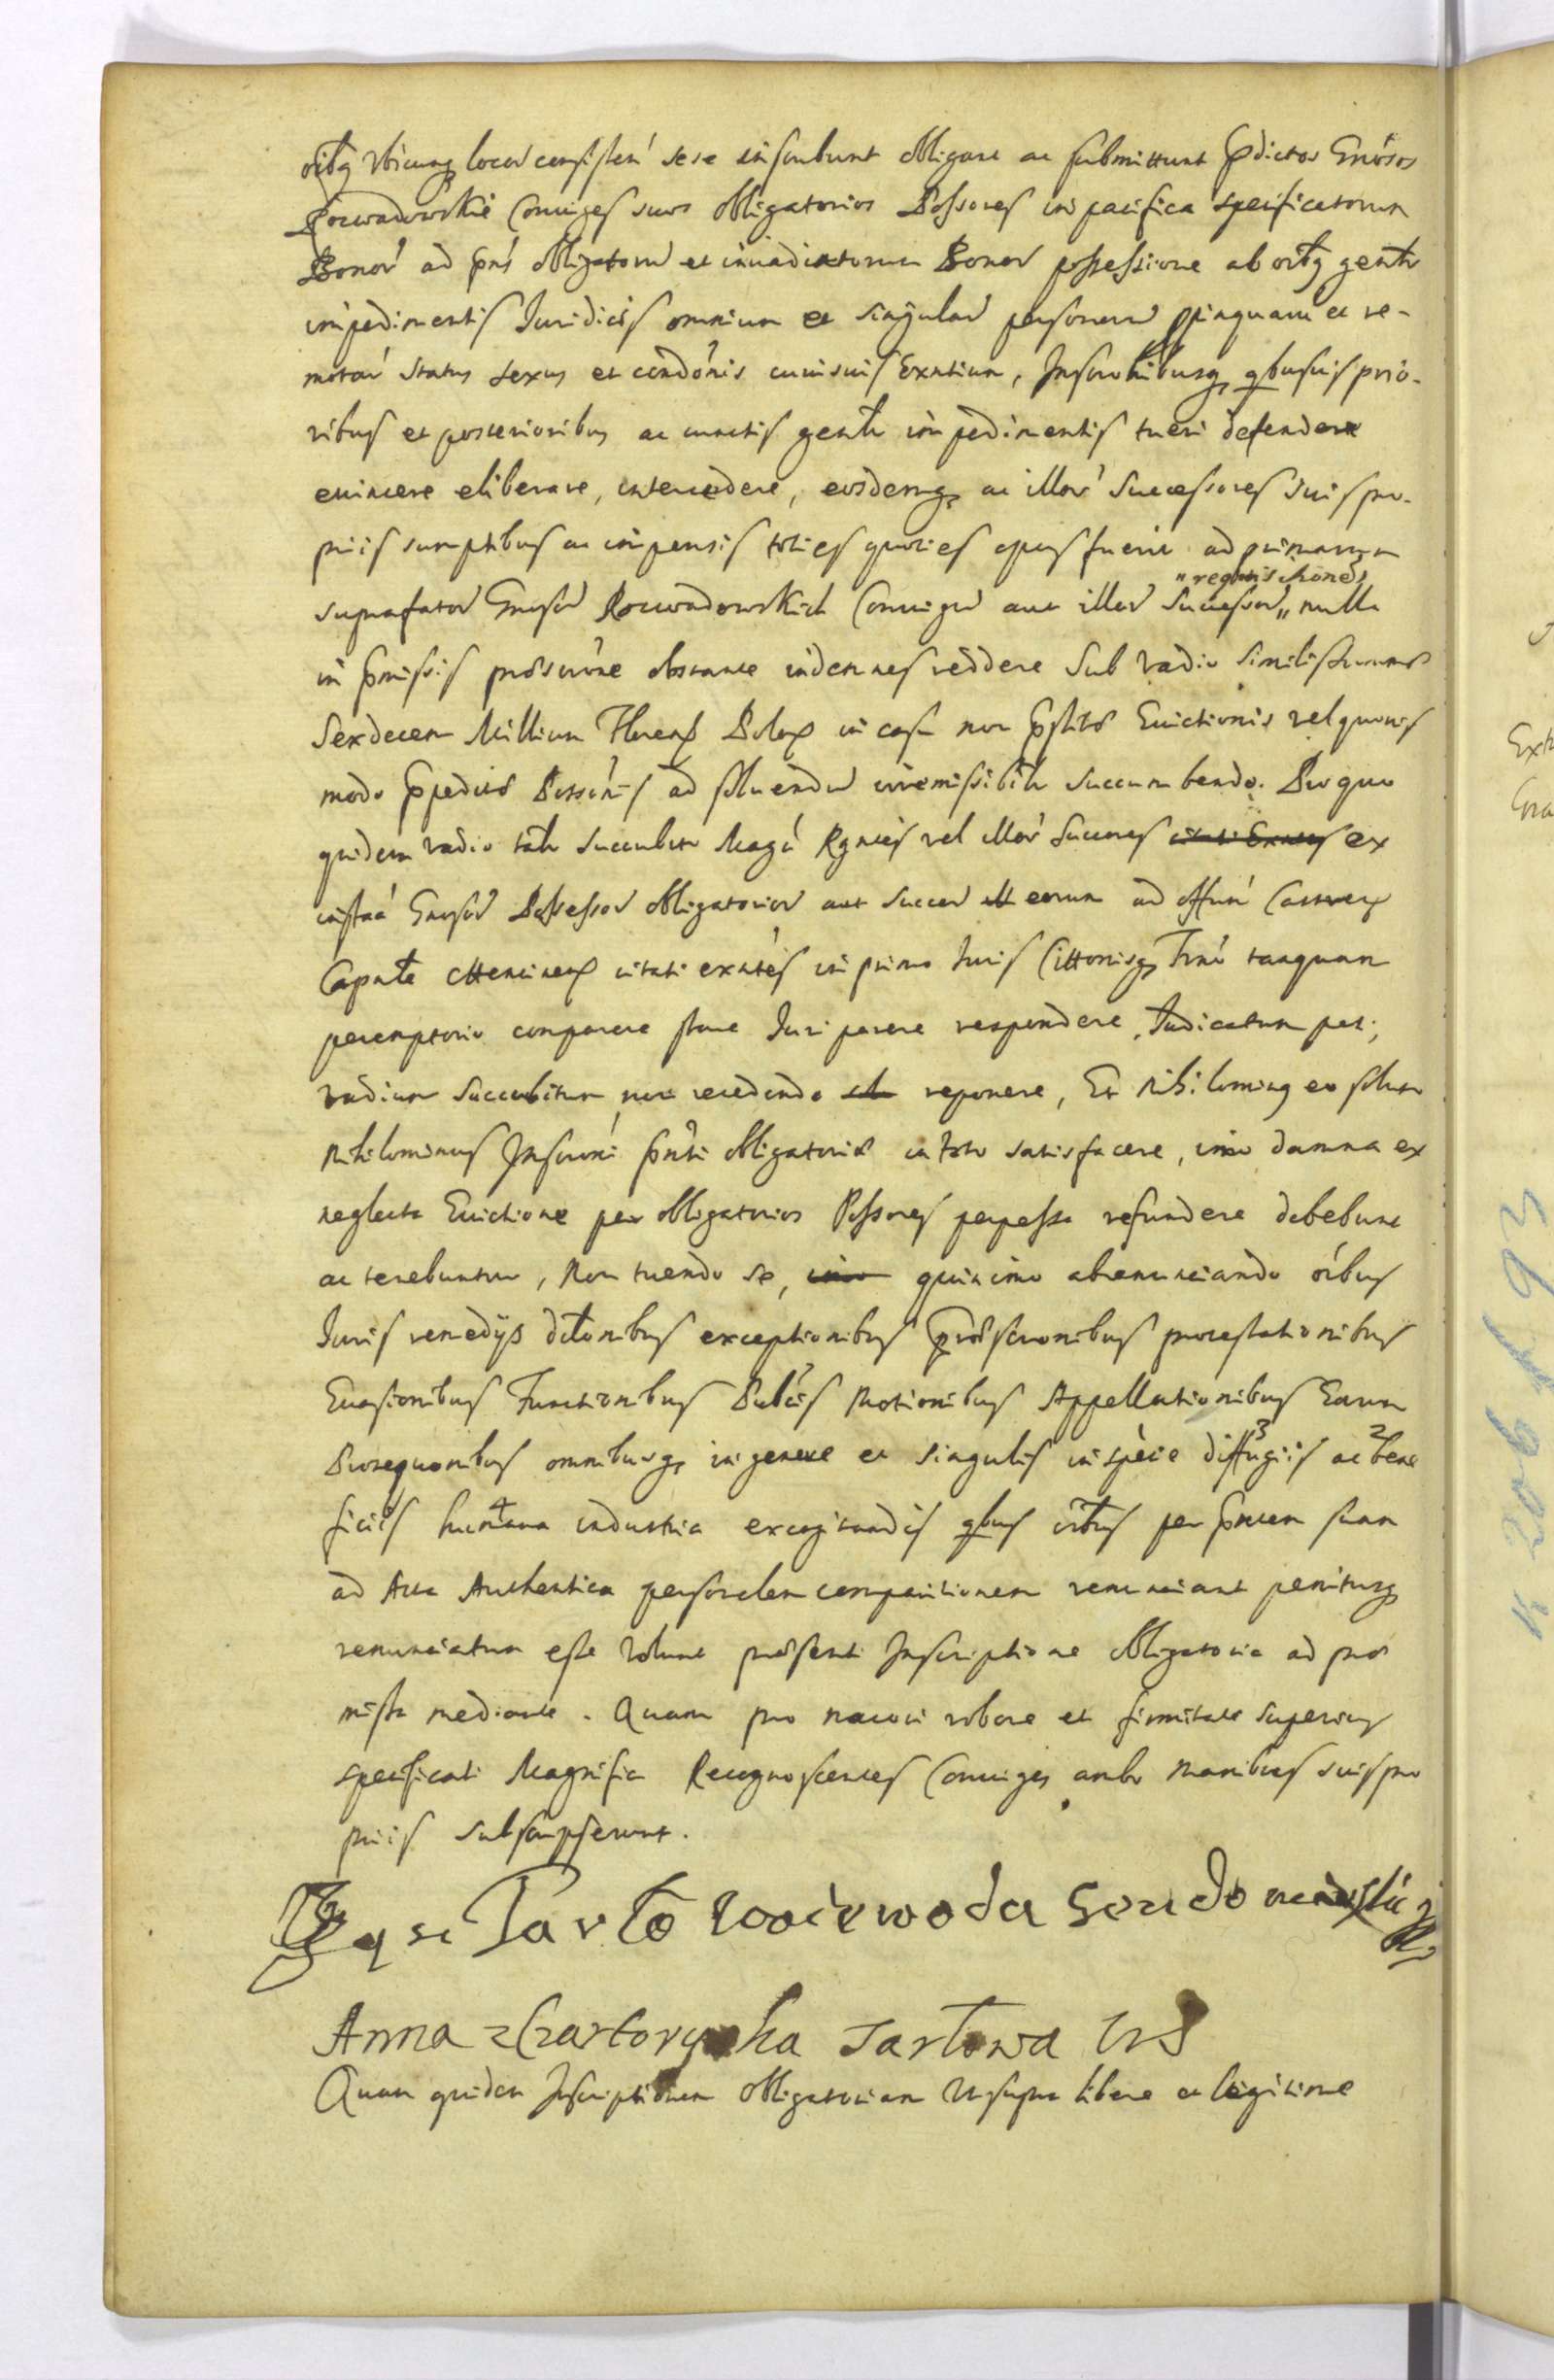 oribq Vbicunq locor consisten sese inscribunt obligare ac submittunt prdictos Gnosos
Rozwadowskie Coniuges suos obligatorios Possores in pacifica specificatorum
Bonor ad prns obligatoru et inuadiatorum Bonor possessione ab oribq genrlr
impedimentis Juridicis omnium et singular personaru propinquaru et re-
motar status sexus et condonis cuiusuis Exntium, Inscronibusq qbusuis prio-
ribus et posterioribus ac cunctis genrlr impedimentis tueri defendere
euincere eliberare, intercedere, eosdemq ac illor Successores suis pro-
priis sumptibus ac impensis toties quoties opus fuerit ad primariam
suprafator Gnosor Rozwadowskich Coniugu aut illor Successor " nulla
" requisitione
in prmissis proscrone obstante indemnes reddere Sub vadio similis summae
Sexdecem Millium Floren Polo in casu non prstitae Euictionis vel quouis
modo prpeditae Possonis ad soluendu irremissibilr succumbendo. Pro quo
quidem vadio talr succubito Magci Rgnces vel illor Succres ex
instaa Gnosor Possessor obligatorior aut Succor eorum ad offiu Castren
Capnle citati exntes in primo Juris Cittonisq Trno tanquam
peremptorio comparere stare Juri parere respondere, Judicatum pati,
vadium succubitum non recedendo reponere, Et nihilominq eo soluto
nihilominus Inscroni prnti obligatoriae in toto satisfacere, imo damna ex
neglecta Euictione per obligatorios Possores perpessa refundere debebunt
ac tenebuntur, Non tuendo se, quinimo abrenunciando oibus
Juris remedys dilonibus exceptionibus proscronibus protestationibus
Euasionibus Functionibus Publcis Motionibus Appellationibus Earum
Prosequonibus omnibusq in genere et singulis in specie diffugiis ac bene
ficiis humana industria excogitandis qbus oribus per prntem suam
ad Acta Authentica personalem comparitionem renunciant penitusq
renunciatum esse volunt praesenti Inscriptione obligatoria ad prae
missa mediante. Quam pro maiori robore et firmitate superius
specificati Magnifici Recognoscentes Coniuges ambo manibus suis pro
priis subscripserunt.
Tarło Woiewoda Sendomirski
Anna z Czartoryska Tarłowa WS
Quam quidem Inscriptionem obligatoriam Vt supra libere ac legitime